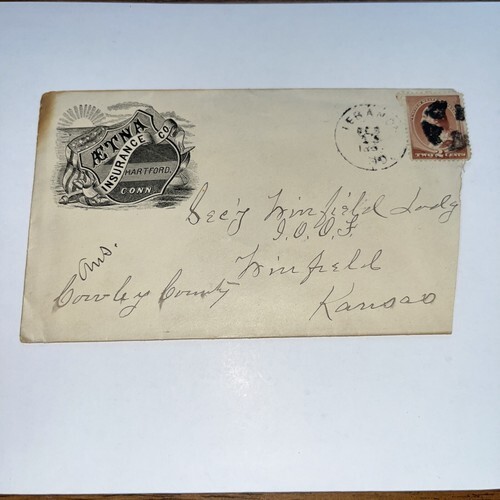 ÆTNA
INSURANCE CO
HARTFORD.
CONN
LEBANON
TWO CENTS
Sec'y Winfield Lodg
I.O.O.F
Winfield
Kansas
Ans.
Cowley County